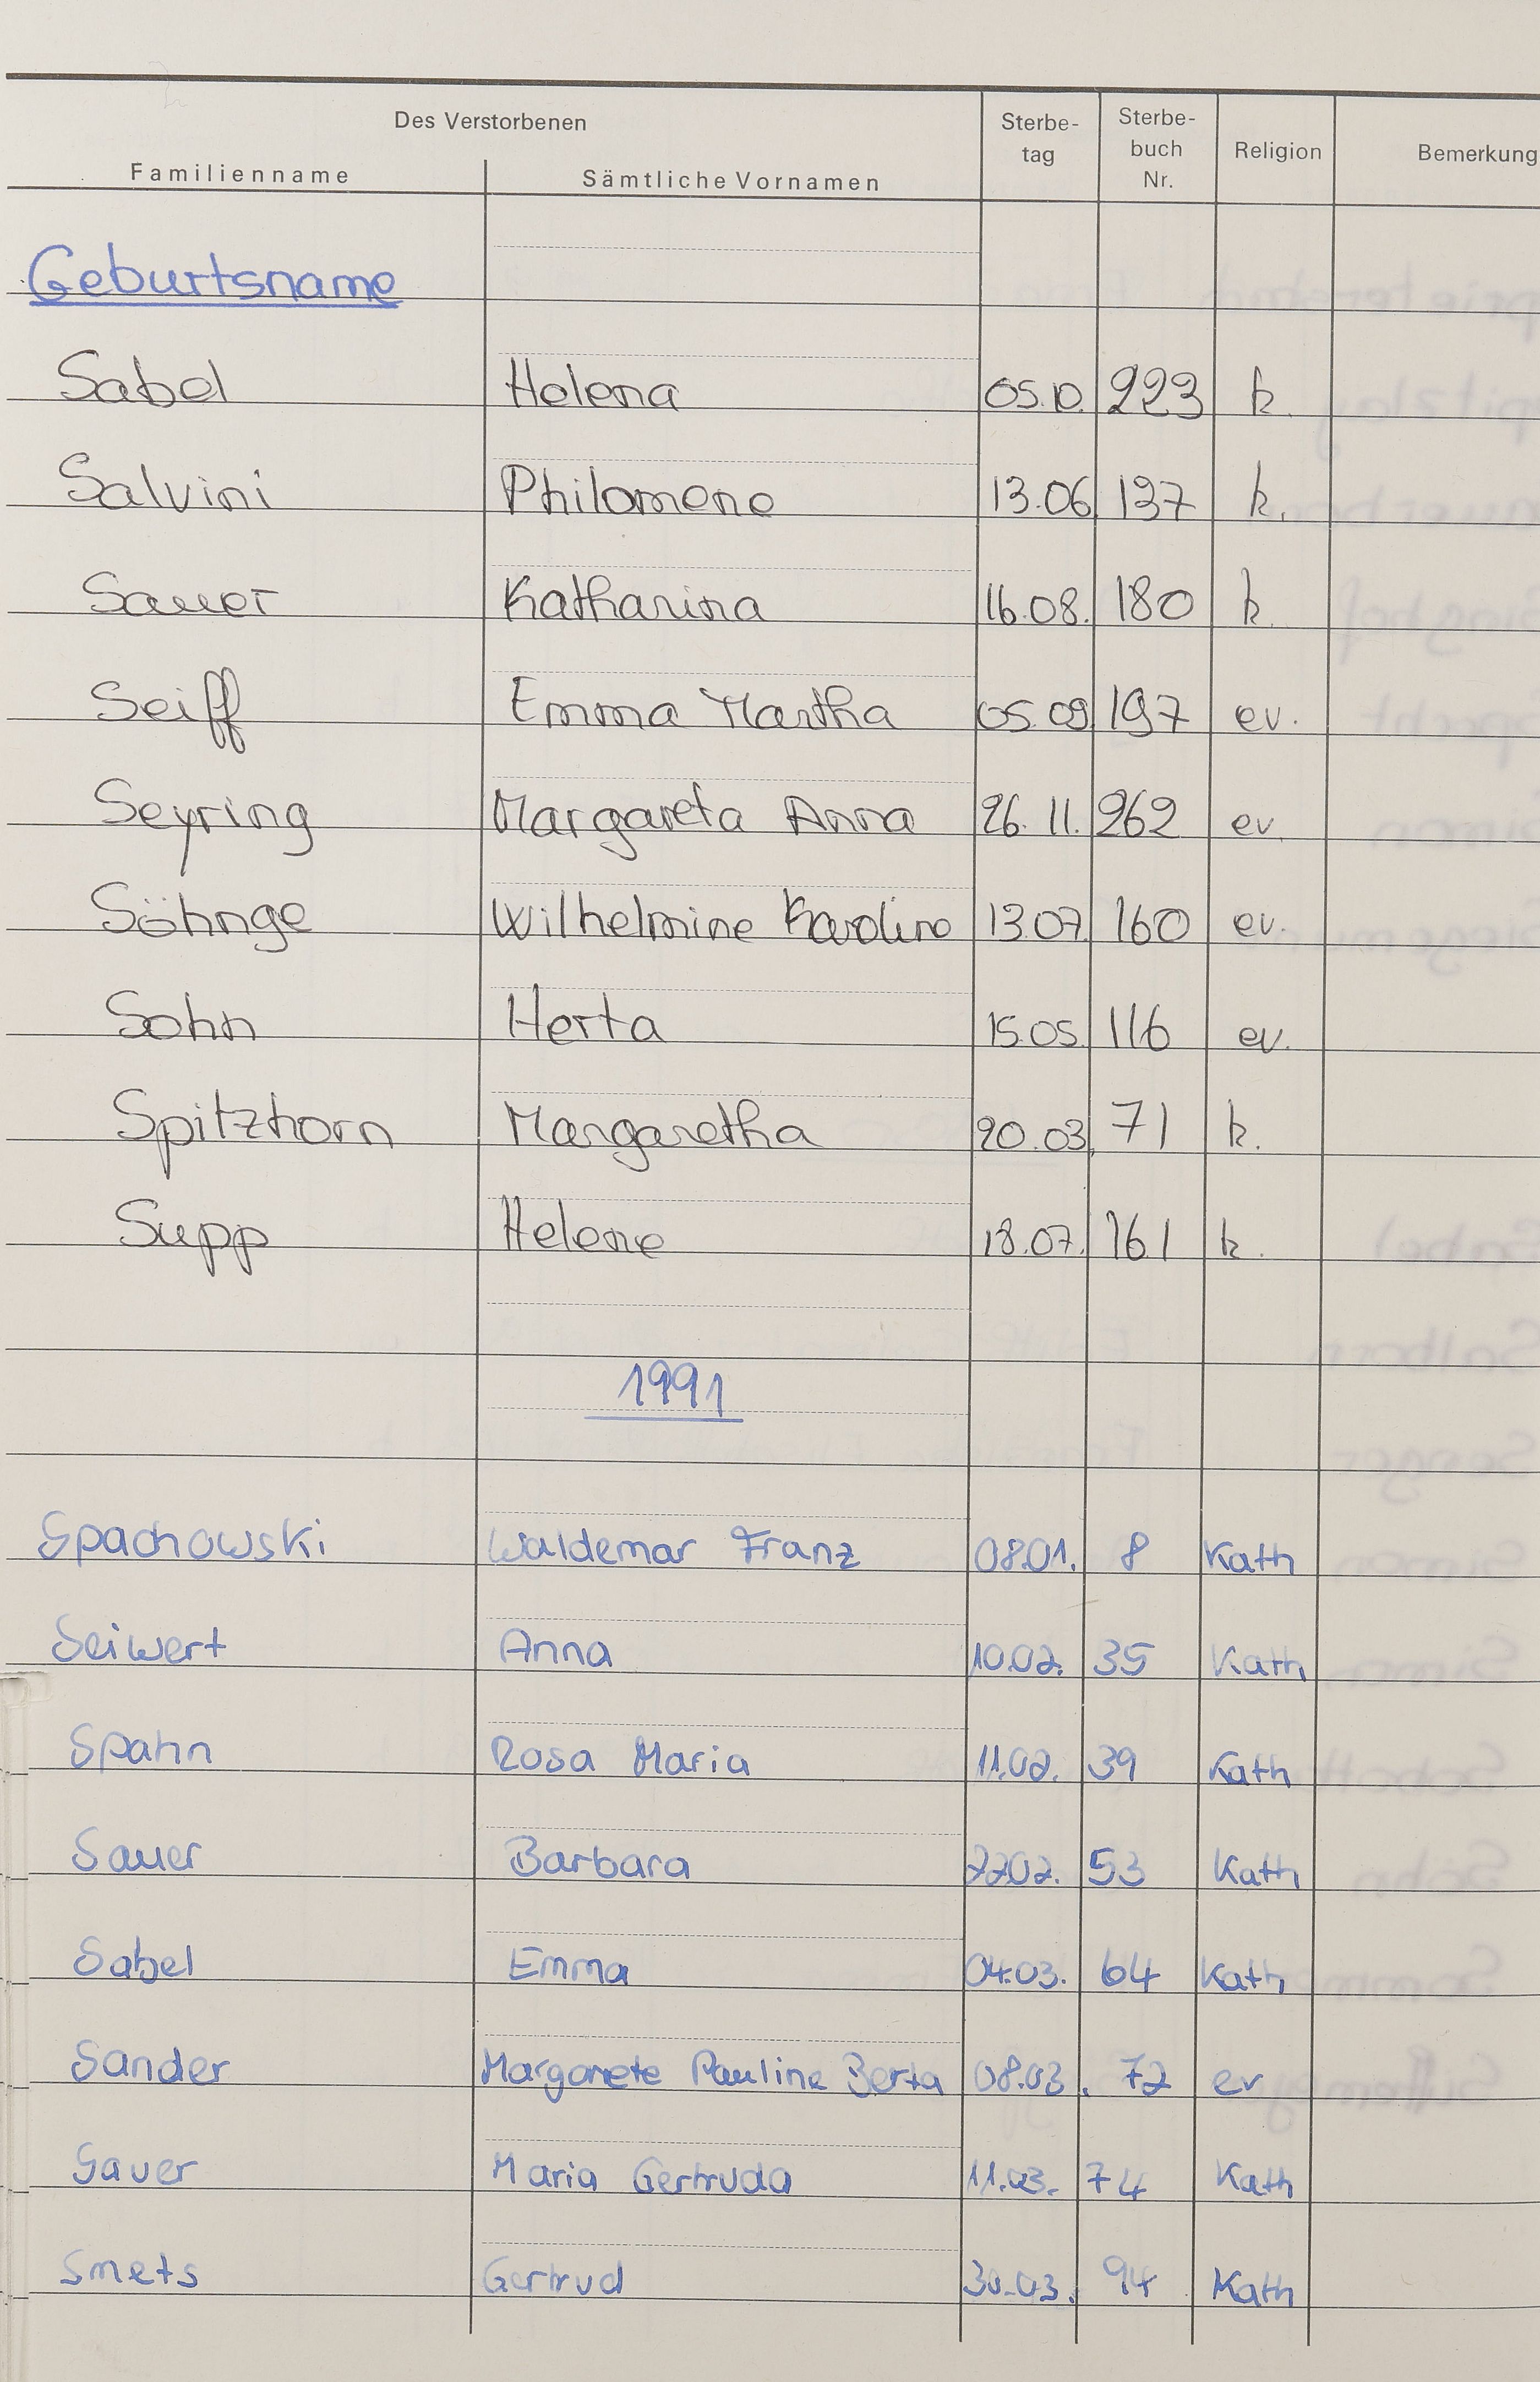 Des Verstorbenen
Familienname Sämtliche Vornamen Sterbe-tag Sterbe-buch Nr. Religion Bemerkung
Geburtsname
Sabel Helena 05.10. 223 k.
Salvini Philomene 13.06 137 k.
Sauer Katharina 16.08. 180 k.
Seiff Emma Martha 05.09 197 ev.
Seyring Margareta Anna 26.11. 262 ev.
Söhnge Wilhelmine Karoline 13.07. 160 ev.
Sohn Herta 15.05. 116 ev.
Spitzhorn Margaretha 20.03. 71 k.
Supp Helene 18.07. 161 k.
1991
Spachowski Waldemar Franz 08.01. 8 Kath
Seiwert Anna 10.02. 35 Kath
Spahn Rosa Maria 11.02. 39 Kath
Sauer Barbara 22.02. 53 Kath
Sabel Emma 04.03. 64 Kath
Sander Margarete Pauline Berta 08.03. 72 ev
Sauer Maria Gertruda 11.03. 74 Kath
Smets Gertrud 30.03. 94 Kath